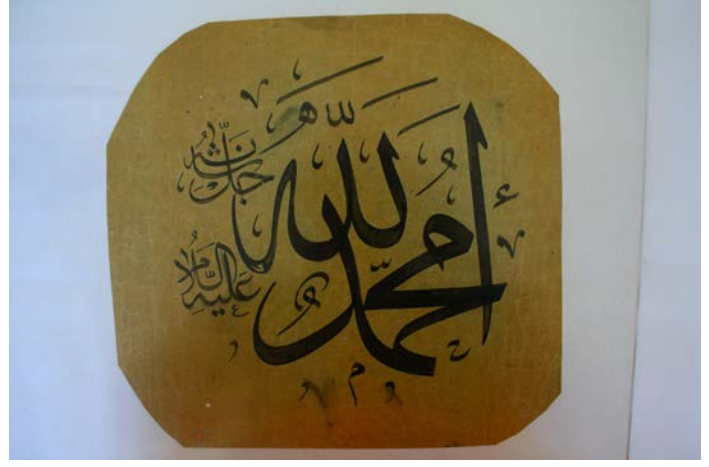 الله
جل شأنه
محمد
عليه السلام